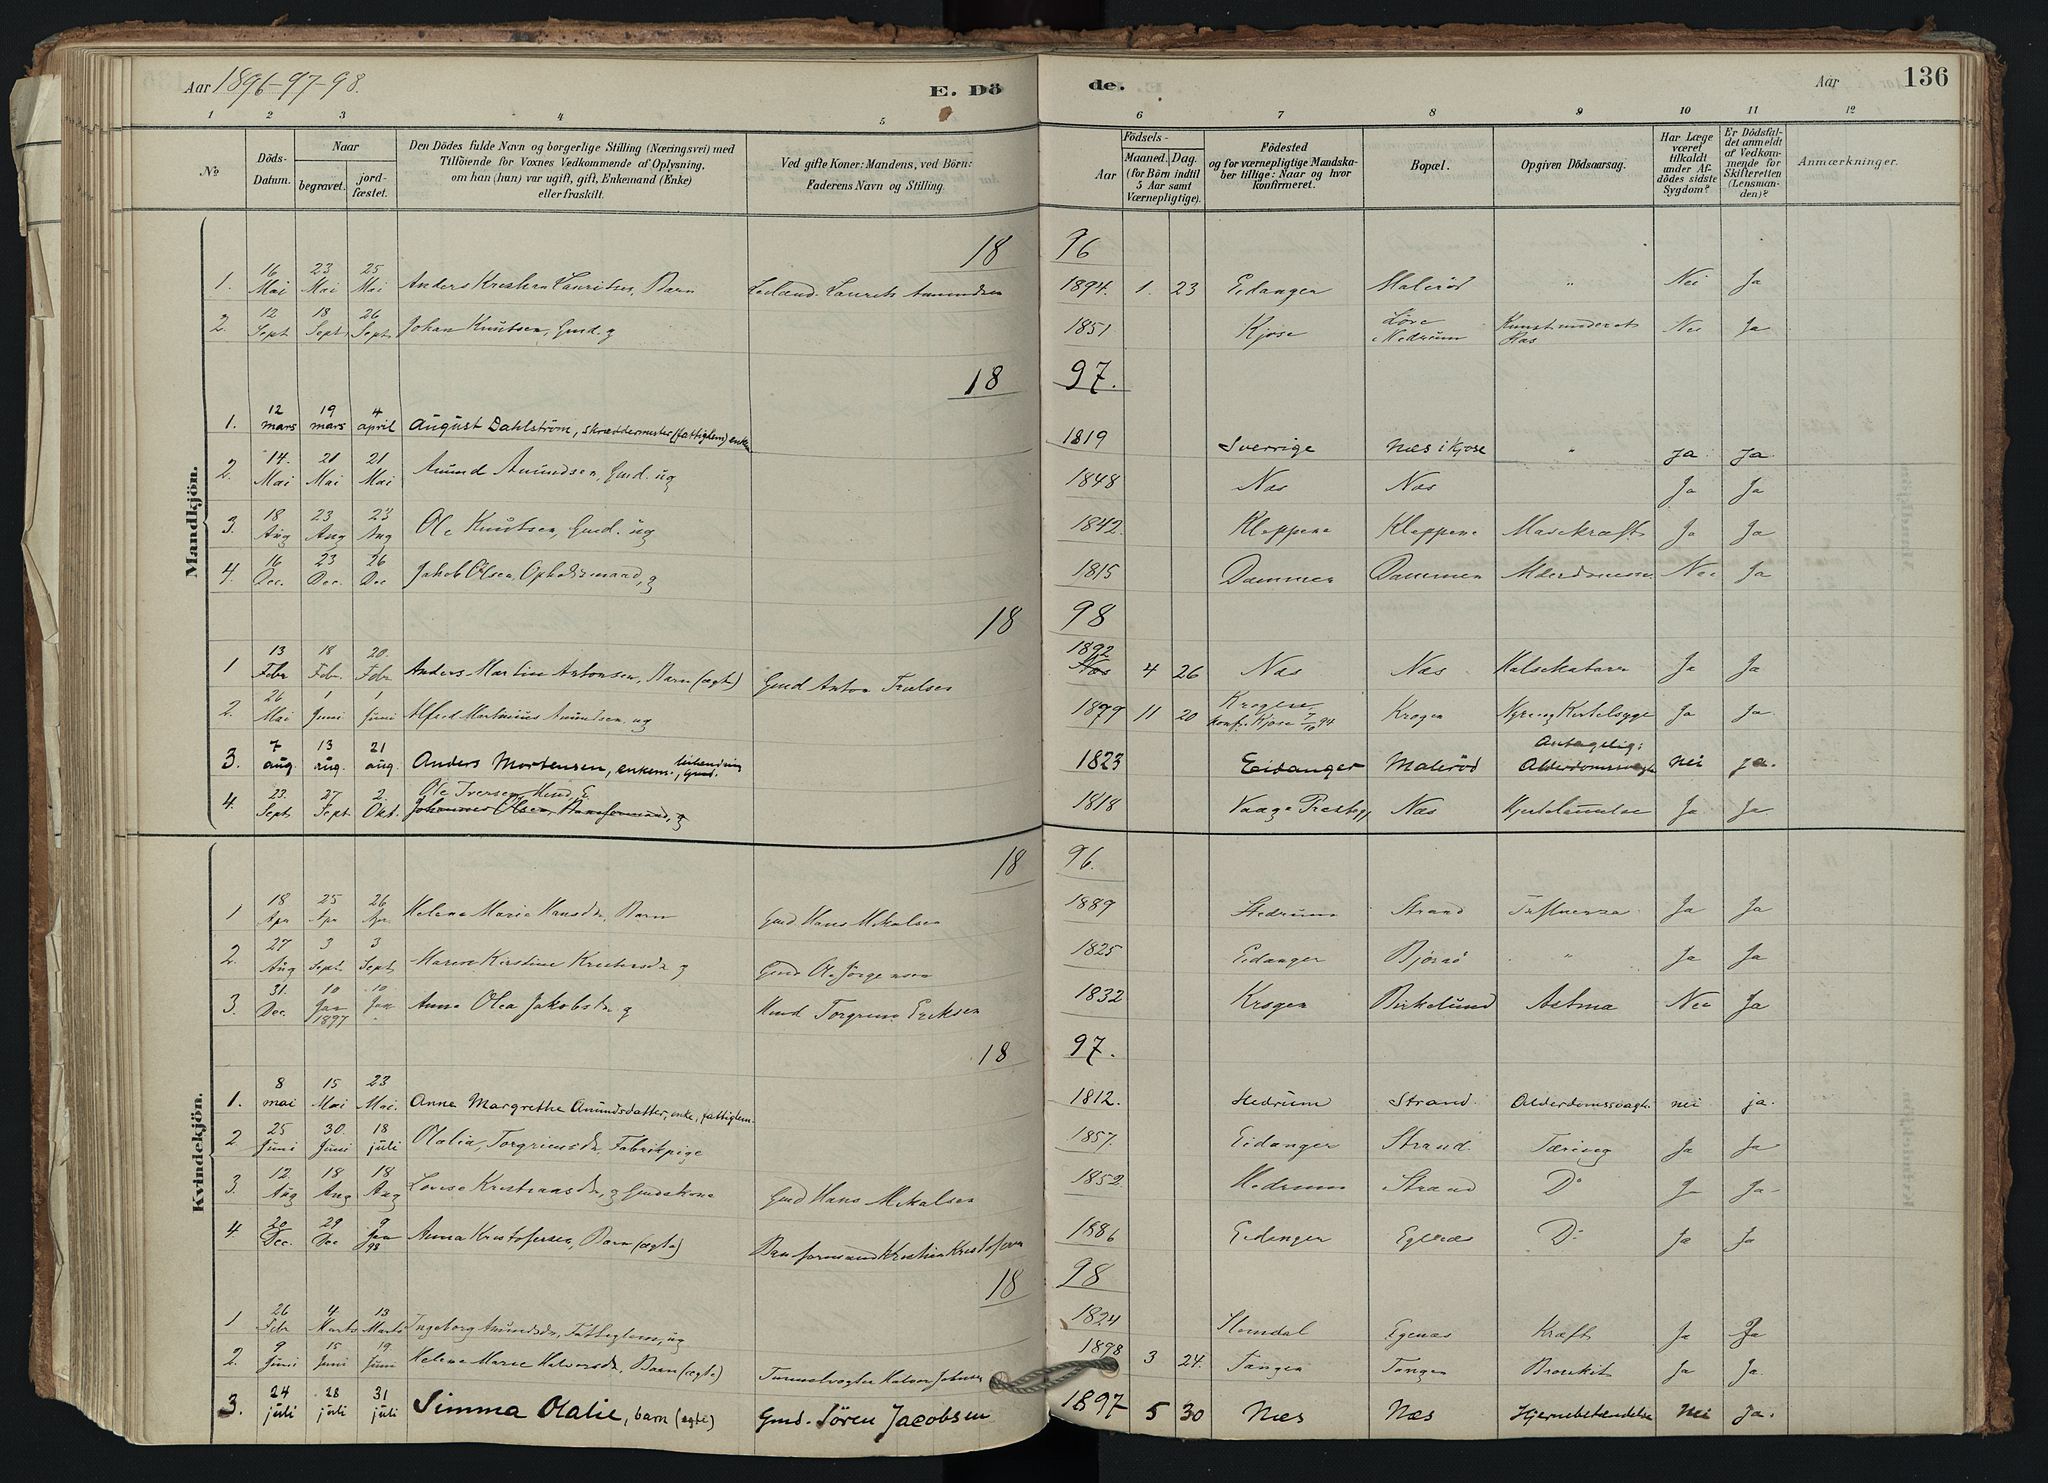 Aar 1896-97-98.
E. Dö
de.
Aar
136
1 2 3 4 5 6 7 8 9 10 11 12
No
Döds-Datum.
Naar
begravet.
jord-fæstet.
Den Dödes fulde Navn og borgerlige Stilling (Næringsvei) med
Tilföiende for Voxnes Vedkommende af Oplysning,
om han (hun) var ugift, gift, Enkemand (Enke)
eller fraskilt.
Ved gifte Koner: Mandens, ved Börn:
Faderens Navn og Stilling.
Födsels-
Aar
Maaned. Dag.
(for Börn indtil
5 Aar samt
Værnepligtige).
Födested
og for værnepligtige Mandska-
ber tillige: Naar og hvor
konfirmeret.
Bopæl.
Opgiven Dödsaarsag.
Har Læge
været
tilkaldt
under Af-
dödes sidste
Sygdom?
Er Dödsfal-
det anmeldt
af Vedkom-
mende for
Skifteretten
(Lensman-
den)?
Anmærkninger.
Mandkjön.
18 96
1. 16 Mai 23 Mai 25 Mai Anders Kristian Lauritsen, Barn Leiland. Laurits Amundsen 1894. 1. 23 Eidanger Malerød " Nei Ja
2. 12 Sept 18 Sept. 26 Sept. Johan Knutsen, Gmd. g 1851 Kjose Nei Ja
18 97.
1. 12 mars 19 mars 4 april August Dahlström, skræddermester (fattiglem) enkem 1819 Sverrige Næs i Kjose " ja Ja.
2. 14. Mai 21 Mai 21 Mai Amund Amundsen, Gmd. ug 1848 Næs Næs Ja Ja
3. 18 Aug 23 Aug 23 Aug Ole Knutsen, Gmd. ug 1842. Kleppene Kleppene Mavekræft Ja Ja
4. 16 Dec. 23 Dec. 26 Dec Jakob Olsen, Opholdsmand, g 1815 Dammen Dammen Nei Ja
18 98
1 13 Febr 18 Febr. 20. Febr Anders Martin Antonsen, Barn (ægte) Gmd Anton Truelsen 1892 4 26 Næs Næs Halskatarr Ja Ja
2. 26 Mai 1 Juni 1 Juni Alfred Martinius Amundsen, ug 1879 11 20 Krogen konf. Kjose 7/10 94 Krogen Ja Ja
3. 7 aug. 13 aug. 21 aug. Anders Mortensen, enkem., Gmd. 1823 Eidanger Malerød Antagelig: Alderdomssvagh nei ja.
4. 23. Sept 27 Sept. 2. Okt. Ole Iversen, Hmd, E. Johannes Olsen, Baneformand, g 1818 Vaage Prestegj. Næs Ja Ja.
Kvindekjön.
18 96.
1 18 Apr 25 Apr 26 Apr. Helene Marie Hansdr, Barn Gmd Hans Mikalsen 1889 Hedrum Strand Influenza Ja Ja
2. 27 Aug 3 Sept. 3 Sept. Maren Kirstine Kristensdr g Gmd Ole Jørgensen 1825 Eidanger Bjørnø " Ja Ja
3. 31. Dec. 10 Jan 1897 10 Jan Anne Olea Jakobsdr g Hmd Torgrim Eriksen 1832 Krogen Birkelund Astma Nei Ja
18 97.
1. 8 mai 15 Mai 23 Mai. Anne Margrethe Amundsdatter, enke, fattiglem 1812. Hedrum Strand. Alderdomssvagh. nei ja.
2 25 Juni 30. Juni 18 juli Olalia, Torgrimsdr, Fabrikpige 1857. Eidanger Strand. Tæring Ja Ja
3. 12 Aug 18 Aug 18 Aug Lovise Kristiansdr, g Gmdskone Gmd Hans Mikalsen 1852. Hedrum Strand Do Ja Ja
4. 20 Dec. 29 Dec 9 Jan 98 Anna Kristofersen, Barn (ægte) Baneformand Kristian Kristofersen 1886 Eidanger Egenes Do Ja Ja
18 98
1 26 Febr 4. Marts 13 Marts Ingeborg Amundsdr, Fattiglem, ug 1824 Slemdal Egenæs Kræft Ja Ja
2. 9 Juni 15 Juni 19. Juni Helene Marie Halvorsdr, Barn (ægte) Tunnelvogter Halvor 1898 3 24. Tangen Tangen Bronkit Ja Ja.
3. 24 juli 28 juli 31 juli Simma Olalie, barn (ægte) Gmd. Sören Jacobsen 1897 5 30 Næs Næs Hjernebetændelse nei Ja.